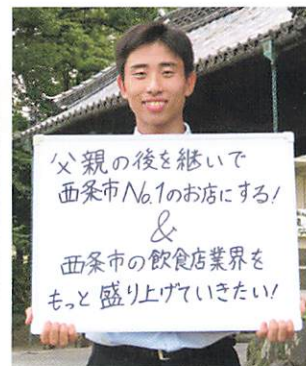 父親の後を継いで
西条市No.1のお店にする!
&
西条市の飲食店業界を
もっと盛り上げていきたい!